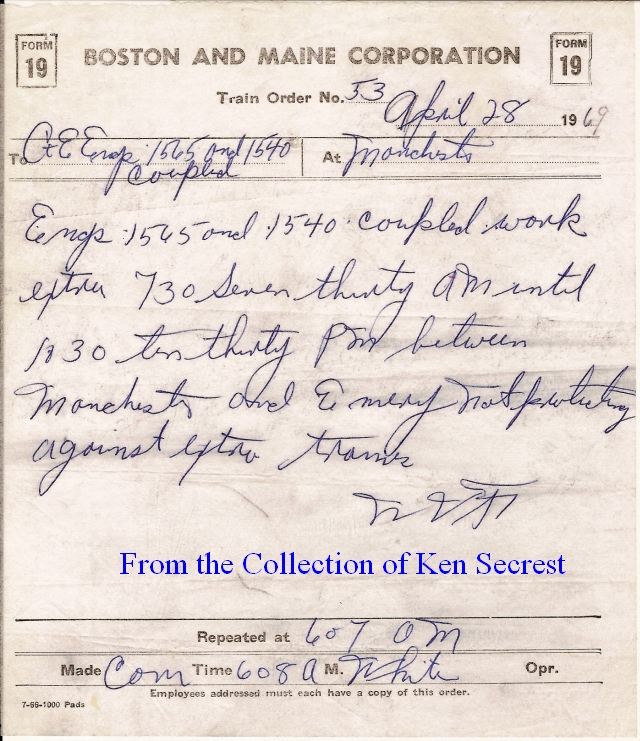 FORM 19
BOSTON AND MAINE CORPORATION
FORM 19
Train Order No. 53
April 28 1969
To C+E Engs 1565 and 1540 coupled
At Manchester
Engs 1565 and 1540 coupled work
extra 730 Seven thirty AM until
1030 ten thirty PM between
Manchester and Emery not protecting
against extra trains
From the Collection of Ken Secrest
Repeated at 607 AM
Made Com Time 608 A M. White Opr.
Employees addressed must each have a copy of this order.
7-66-1000 Pads